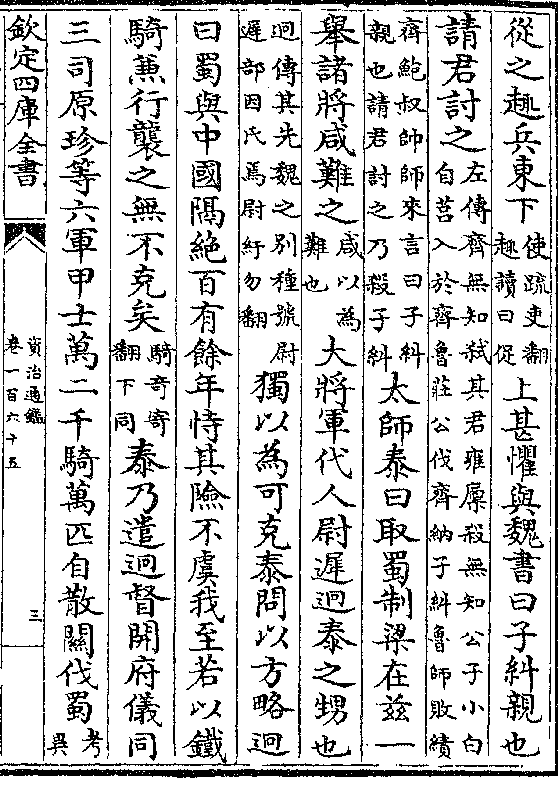 從之趣兵東下使疏吏翻趣讀曰促上甚懼與魏書曰子糾親也
請君討之左傳齊無知弑其君雍廩殺無知公子小白自莒入於齊魯莊公伐齊納子糾魯師敗績
齊鮑叔帥師來言曰子糾親也請君討之乃殺子糾太師泰曰取蜀制梁在兹一
舉諸將咸難之咸以為難也大將軍代人尉遲迥泰之甥也
迥傳其先魏之别種號尉遲部因氏焉尉紆勿翻獨以為可克泰問以方略迥
曰蜀與中國隔絶百有餘年恃其險不虞我至若以鐵
騎兼行襲之無不克矣騎奇寄翻下同泰乃遣迥督開府儀同
三司原珍等六軍甲士萬二千騎萬匹自散關伐蜀考異
欽定四庫全書
資治通鑑
卷一百六十五
三